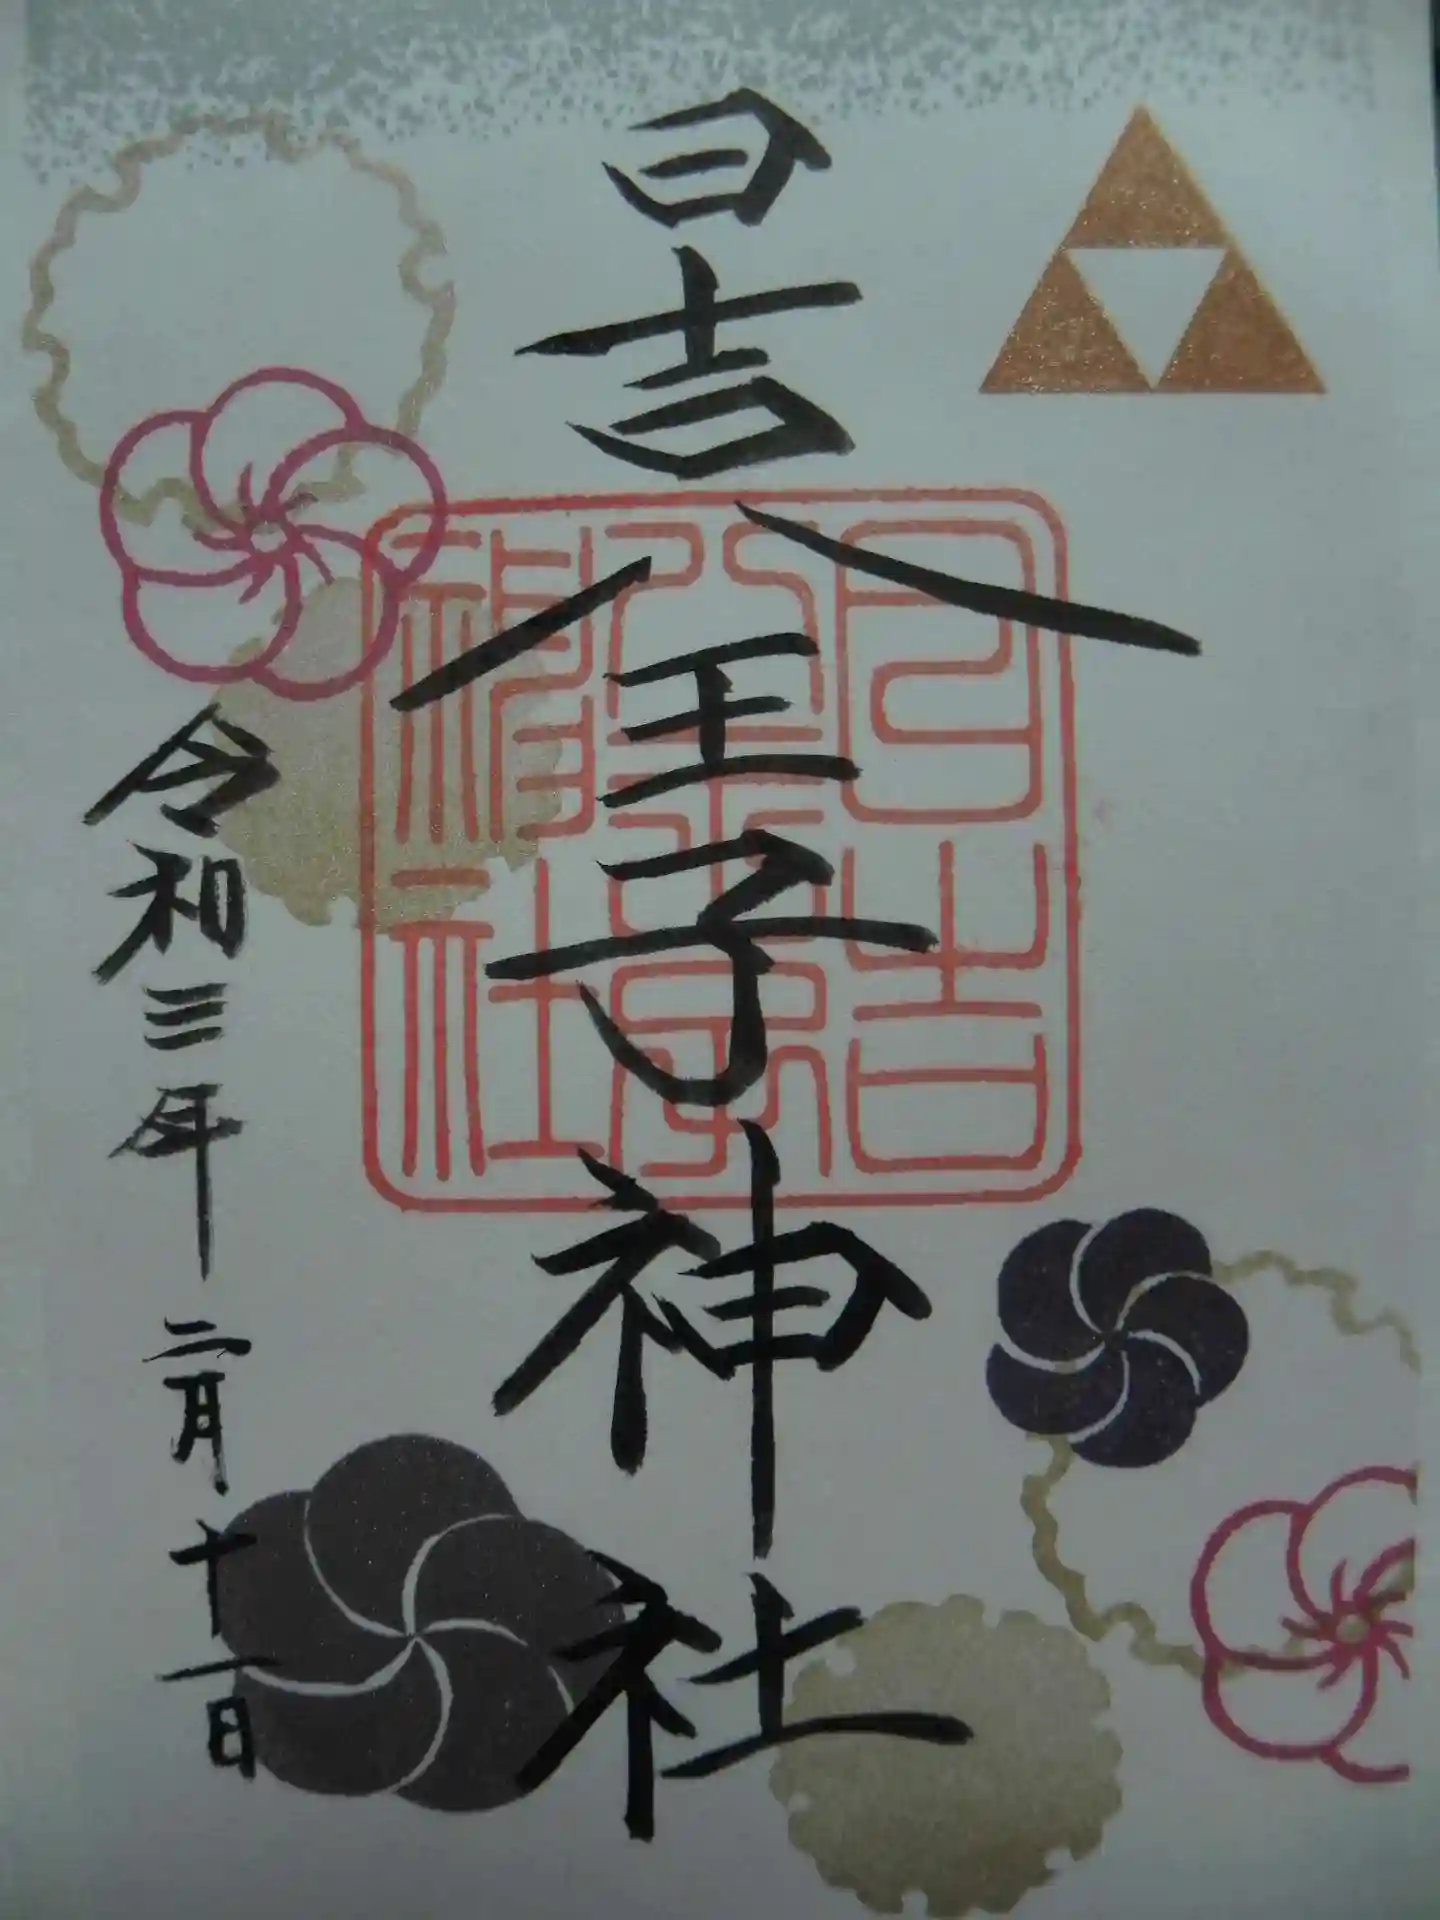 日吉八王子神社
日吉
八王子
神社
令和三年二月十一日